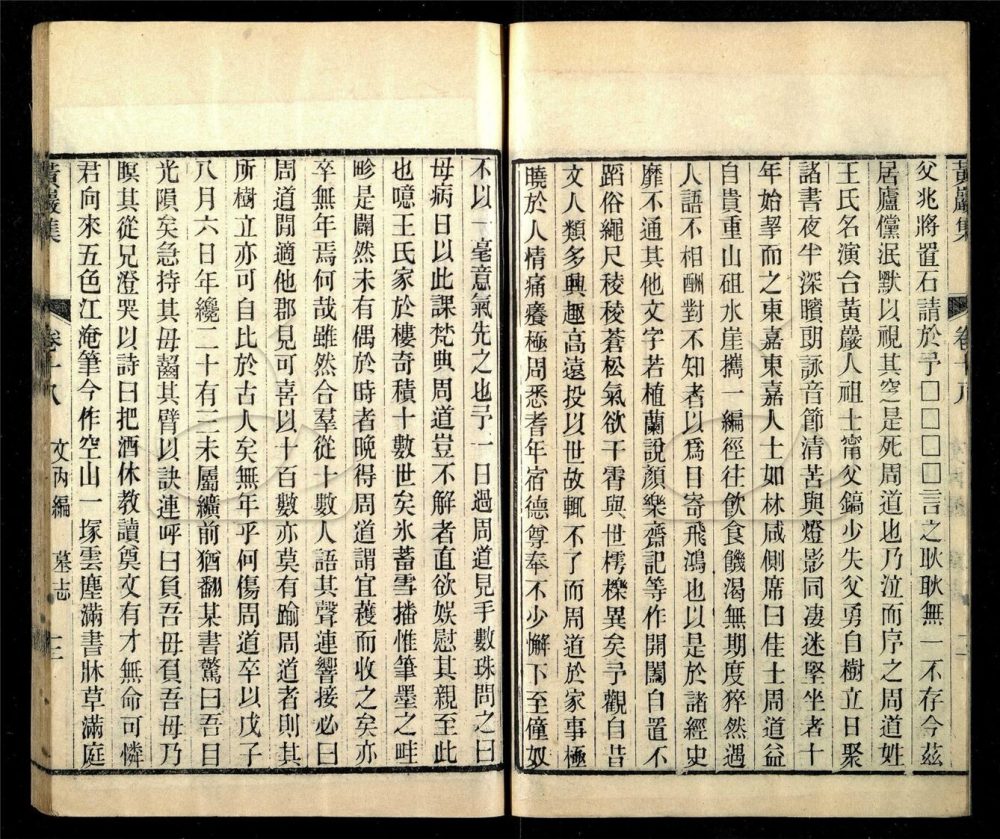 黃巖集 卷十八
父兆將置石請於予□□□□言之耿耿無一不存今茲
居廬儻泯默以視其窆是死周道也乃泣而序之周道姓
王氏名演台黃巖人祖士甯父鎬少失父勇自樹立日聚
諸書夜半深矉朗詠音節清苦與燈影同凄迷堅坐者十
年始挈而之東嘉東嘉人士如林咸側席曰佳士周道益
自貴重山砠水崖攜一編徑往飲食饑渴無期度猝然遇
人語不相酬對不知者以爲目寄飛鴻也以是於諸經史
靡不通其他文字若植蘭說顏樂齋記等作開闔自置不
蹈俗繩尺稜稜蒼松氣欲干霄與世樗櫟異矣予觀自昔
文人類多興趣高遠投以世故輒不了而周道於家事極
曉於人情痛癢極周悉耆年宿德尊奉不少懈下至僮奴
不以一毫意氣先之也予一日過周道見手數珠問之曰
母病日以此課梵典周道豈不解者直欲娛慰其親至此
也噫王氏家於樓奇積十數世矣氷蓄雪播惟筆墨之畦
畛是闢然未有偶於時者晚得周道謂宜穫而收之矣亦
卒無年焉何哉雖然合羣從十數人語其聲連響接必曰
周道閒適他郡見可喜以十百數亦莫有踰周道者則其
所樹立亦可自比於古人矣無年乎何傷周道卒以戊子
八月六日年纔二十有三未屬纊前猶翻某書驚曰吾目
光隕矣急持其母齧其臂以訣連呼曰負吾母負吾母乃
瞑其從兄澄哭以詩曰把酒休教讀奠文有才無命可憐
君向來五色江淹筆今作空山一塚雲塵滿書牀草滿庭
黃巖集 卷十八 文內編 墓志 二